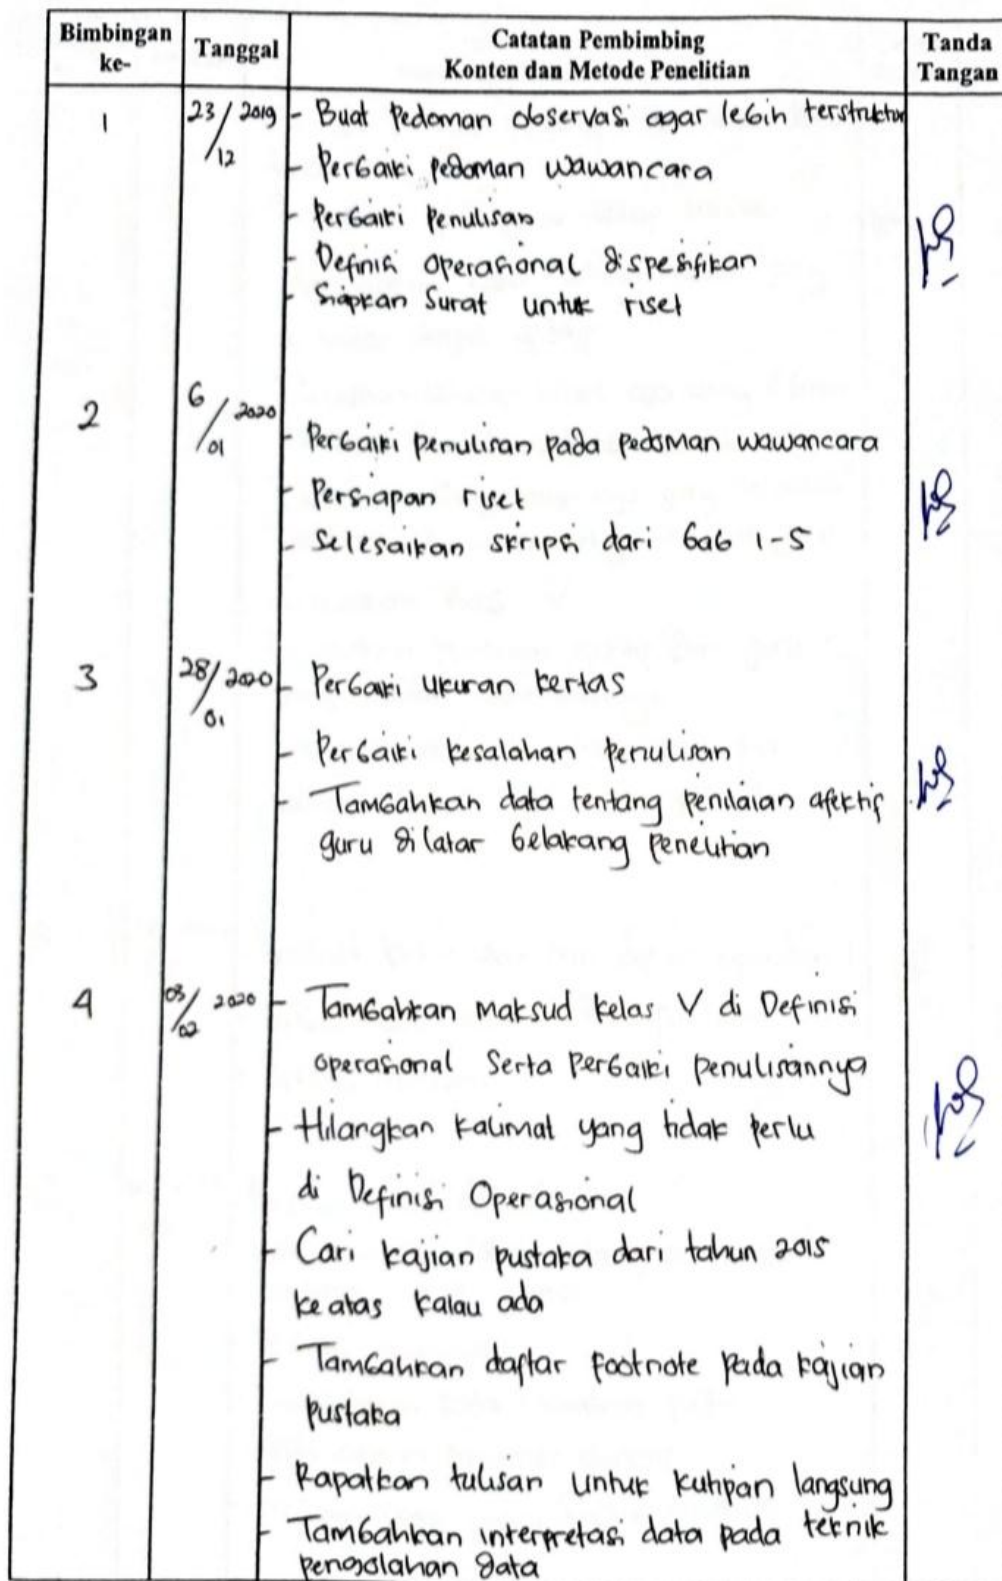 Bimbingan ke- Tanggal Catatan Pembimbing Konten dan Metode Penelitian Tanda Tangan
1 23/12 2019 - Buat Pedoman observasi agar lebih terstruktur
- Perbaiki pedoman wawancara
- Perbaiki penulisan
- Definisi Operasional dispesifikan
- Siapkan Surat untuk riset
2 6/01 2020
- Perbaiki penulisan pada pedoman wawancara
- Persiapan riset
- Selesaikan skripsi dari bab 1-5
3 28/01 2020 - Perbaiki ukuran kertas
- Perbaiki kesalahan penulisan
- Tambahkan data tentang penilaian afektif
guru dilatar belakang penelitian
4 03/02 2020 - Tambahkan maksud kelas V di Definisi
operasional Serta Perbaiki penulisannya
- Hilangkan kalimat yang tidak perlu
di Definisi Operasional
- Cari kajian pustaka dari tahun 2015
keatas kalau ada
- Tambahkan daftar footnote pada kajian
pustaka
- Rapatkan tulisan untuk kutipan langsung
- Tambahkan interpretasi data pada teknik
pengolahan data